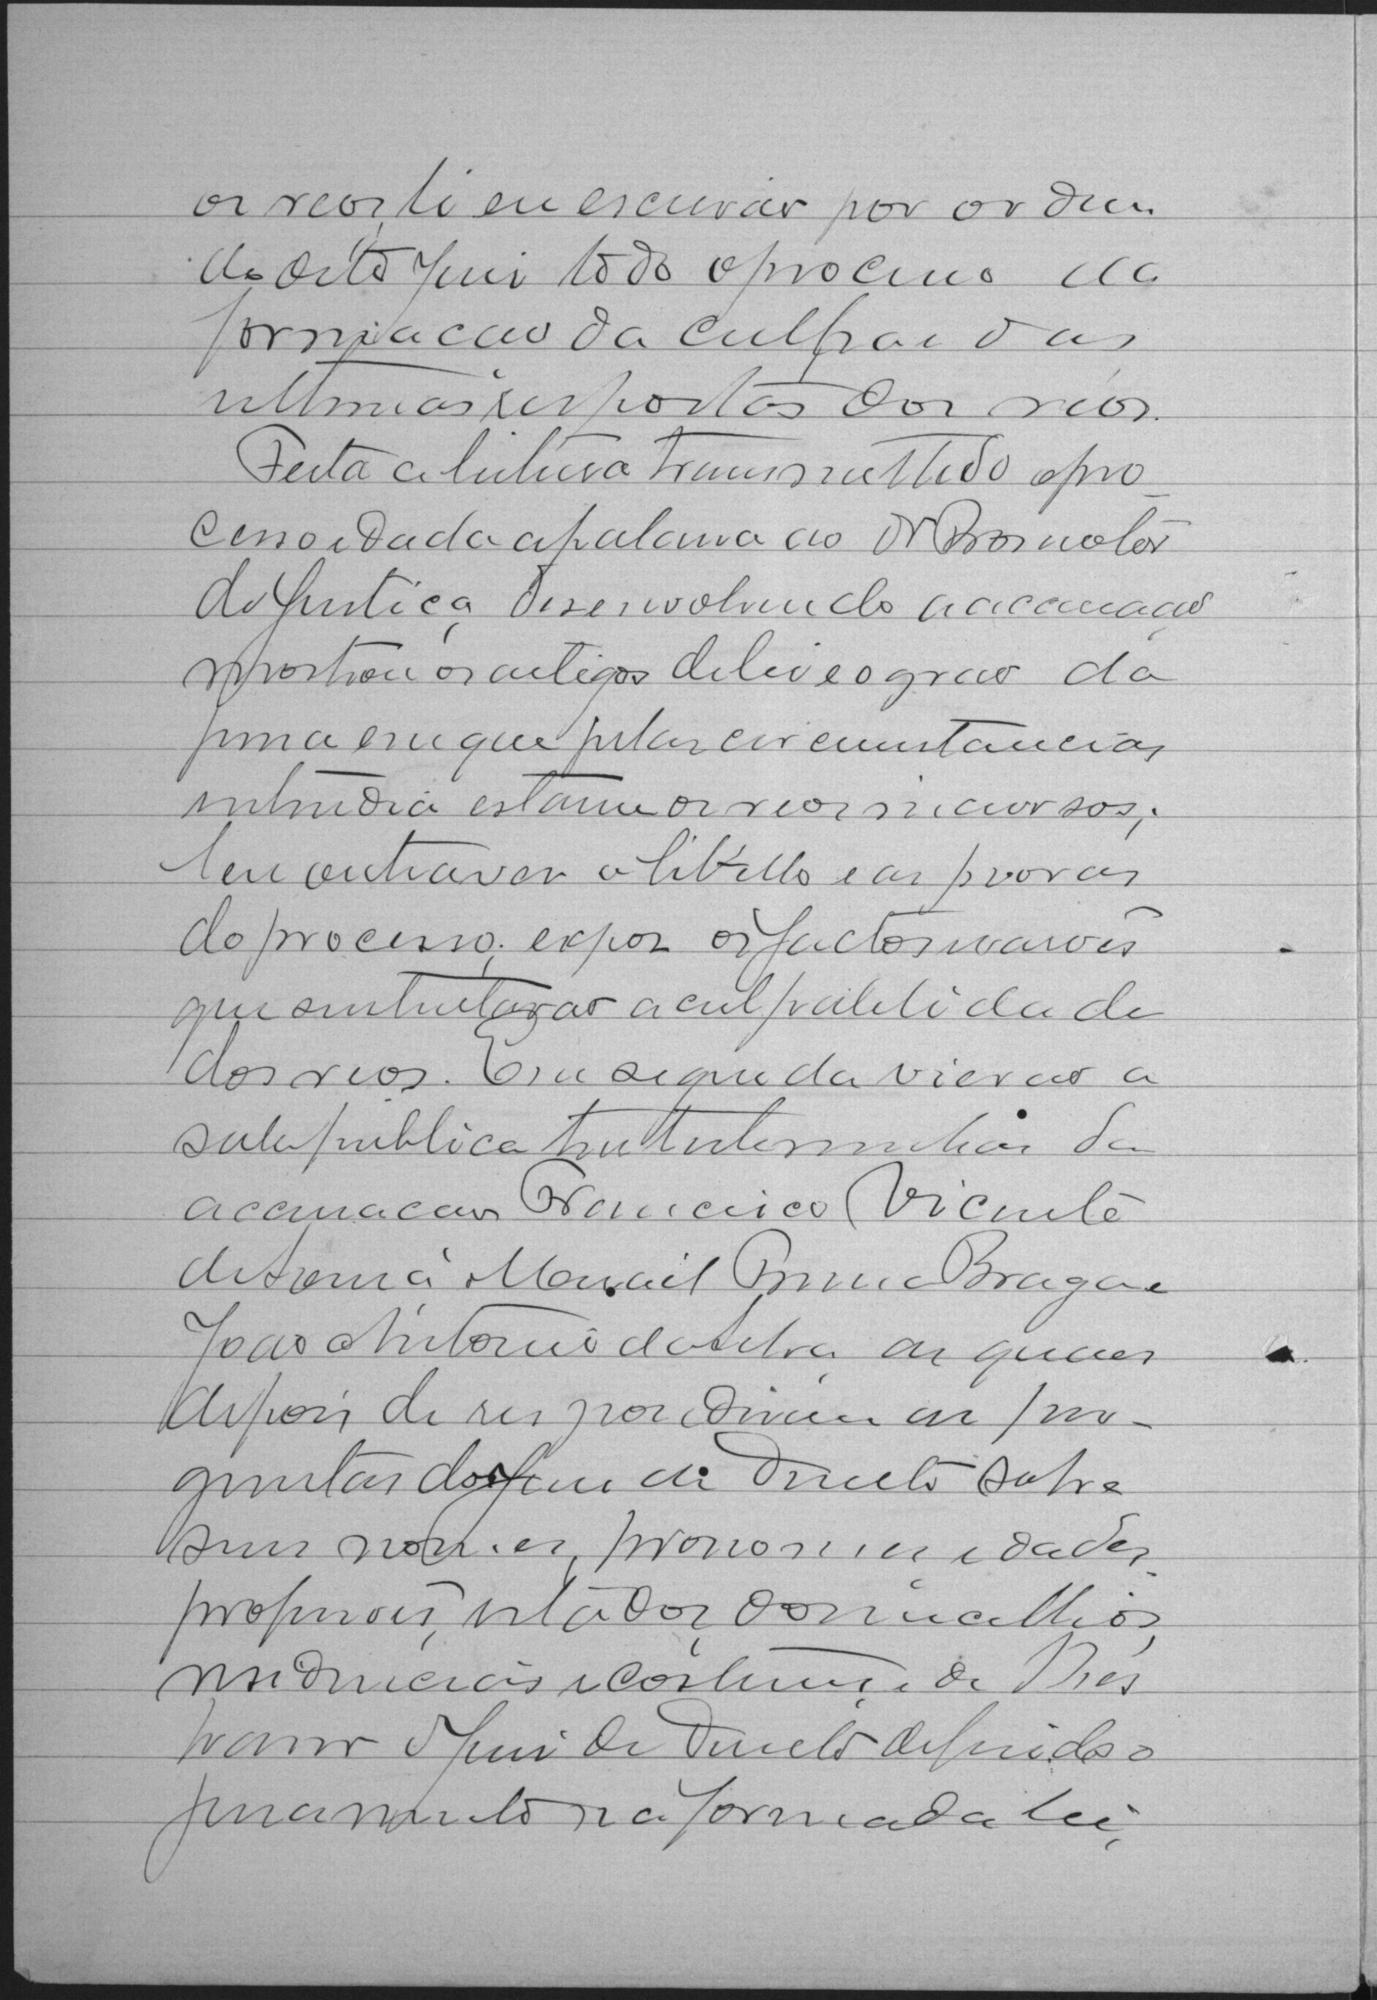 os reos, li eu escrivão por ordem
do dito Juiz todo o processo da
formação da culpa e das
ultimas respostas dos reos.
Feita a leitura transmittido o pro_
cesso e dada a palavra ao Dr Promotor
da Justiça, desenvolvendo a accusação
mostrou os artigos da lei e o grao da
pena em que pelas circumstancias
entendia estarem os reos incursos;
leu outra vez o libello e as provas
do processo, expoz os factos e razões
que sustentavão a culpabilidade
dos reos. Em seguida vierão a
sala publica tres testemunhas da
accusação Francisco Vicente
de Manoel Braga e
João Antonio da Silva, as quaes
depois de responderem as per-
guntas do Juiz de Direito sobre
seus nomes, pronomes, idades,
profissões, estados, domicilios,
residencias e costumes de
o Juiz de Direito deferido o
juramento na forma da lei,